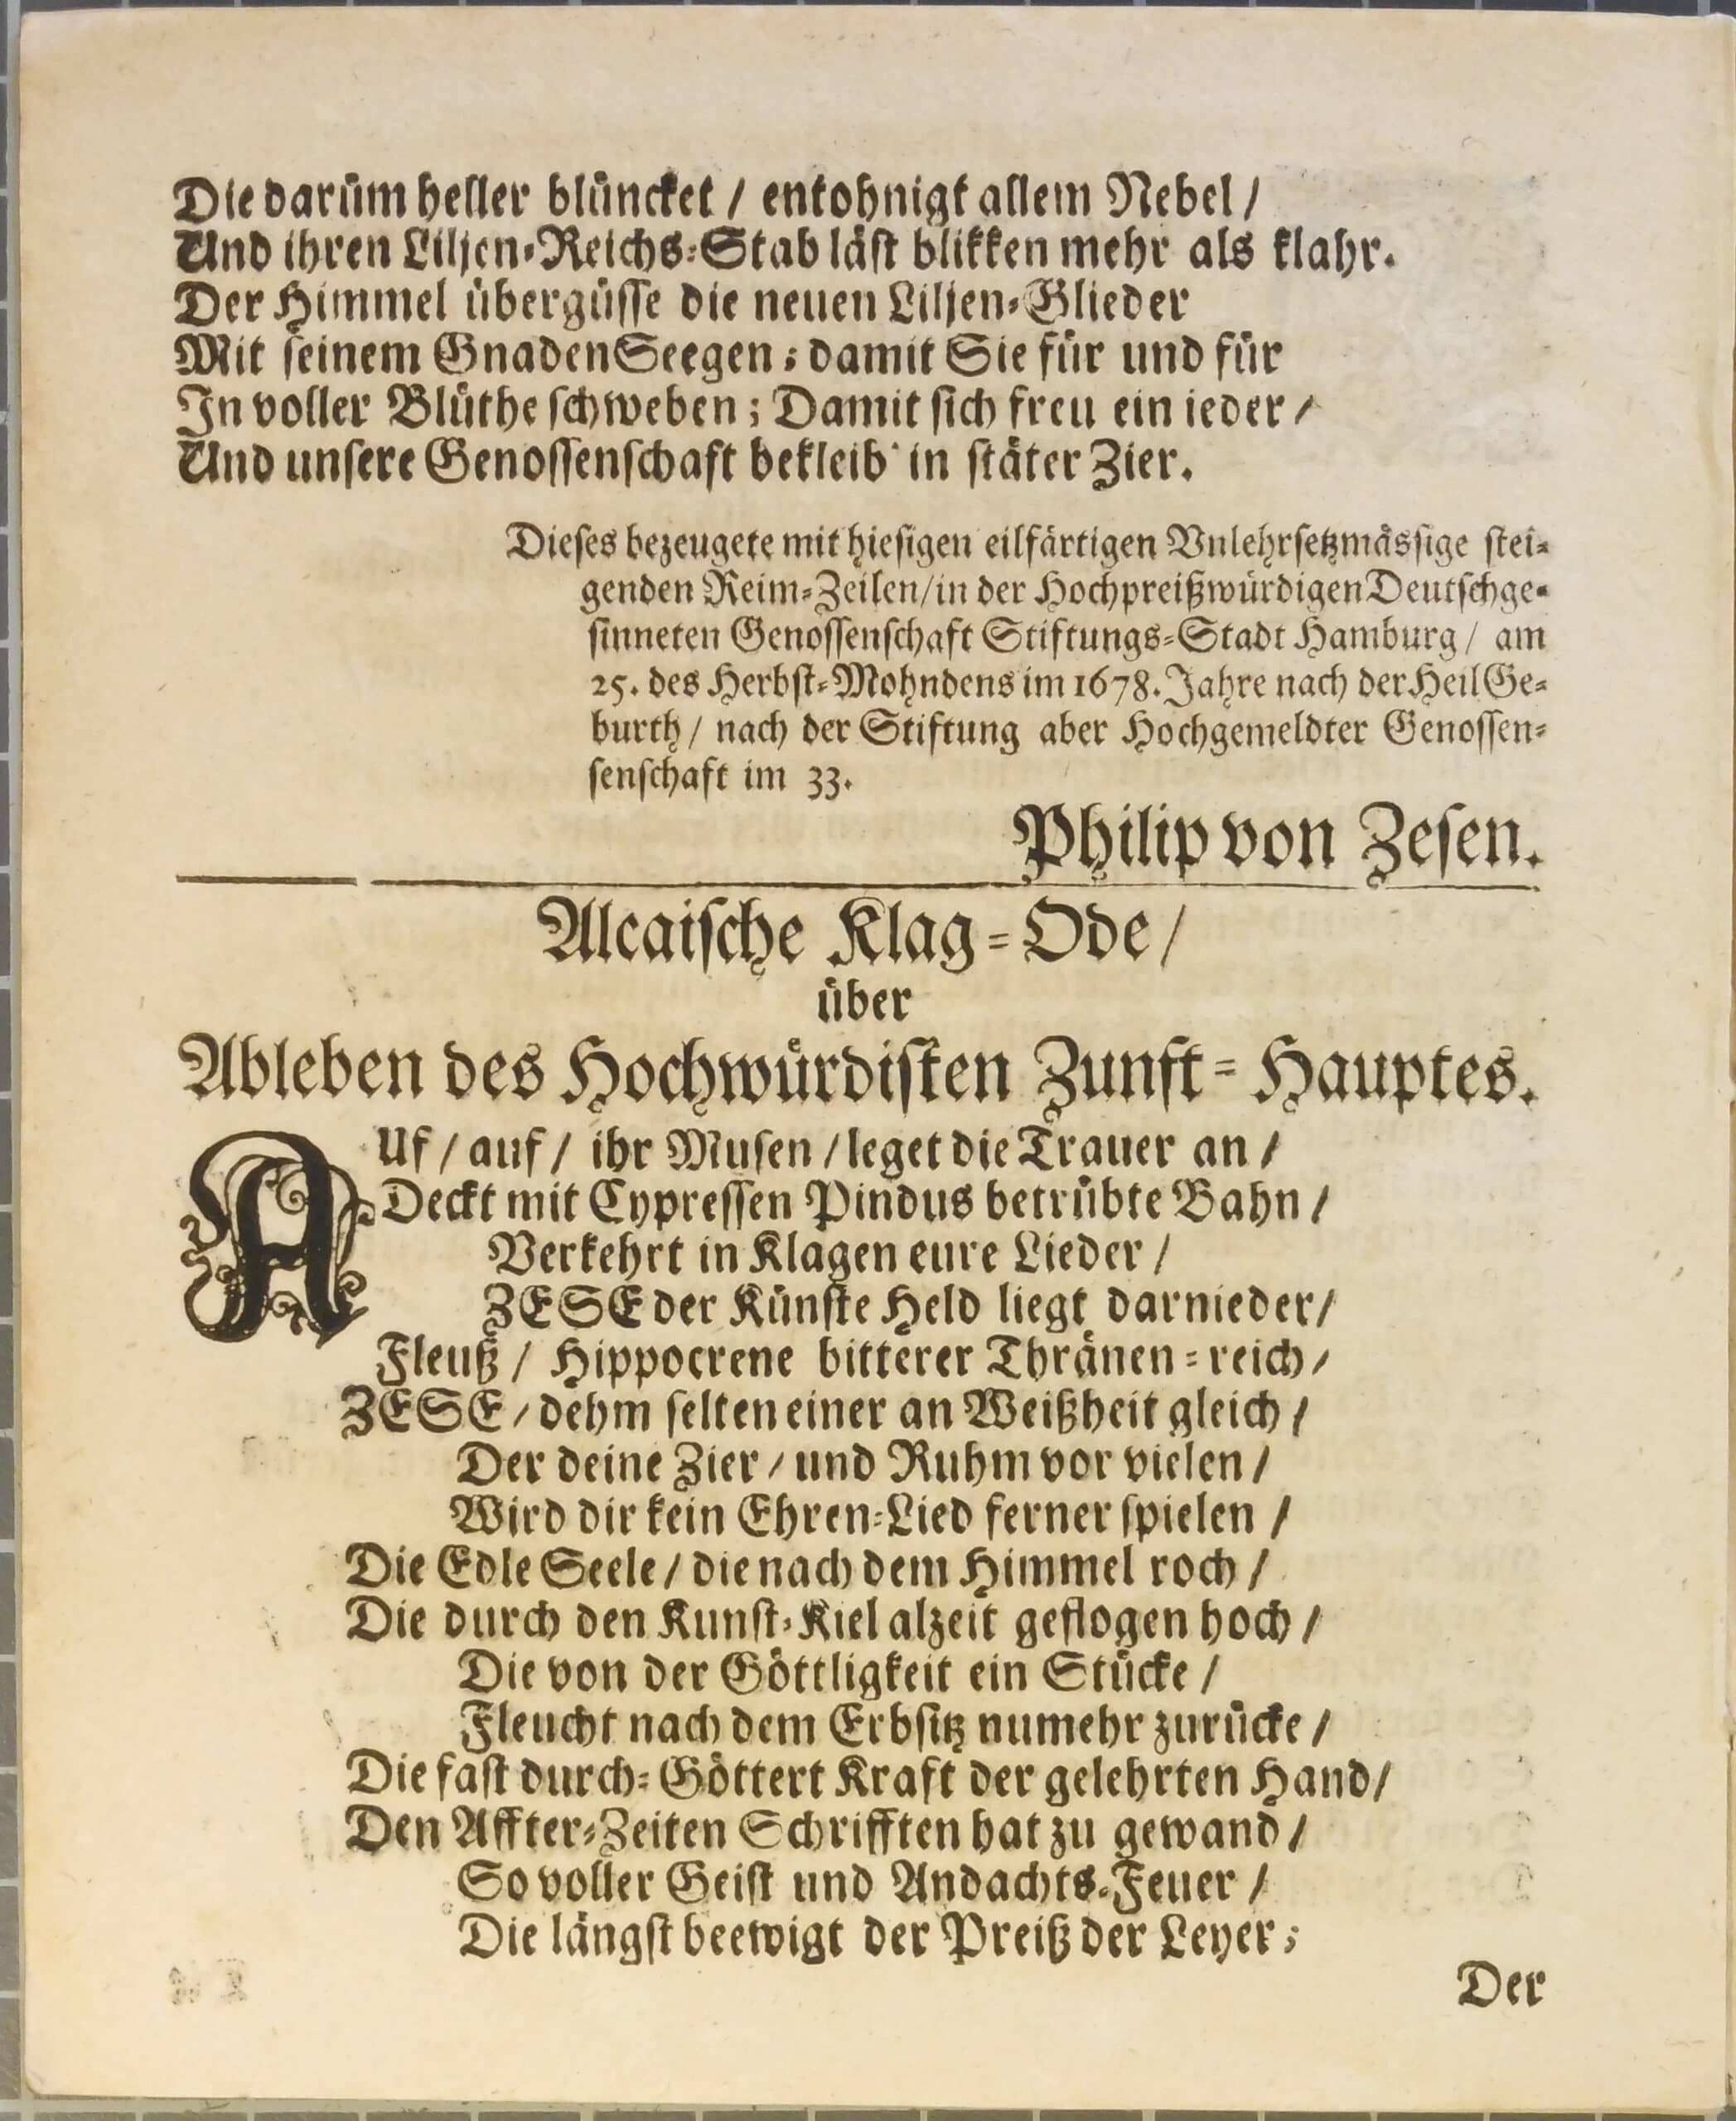 Die darüm heller blüncket / entohnigt allem Nebel /
Und ihren Liljen-Reichs-Stab läſt blikken mehr als klahr.
Der Himmel übergüſſe die neuen Liljen-Glieder
Mit ſeinem GnadenSeegen; damit Sie für und für
In voller Blüthe ſchweben; Damit ſich freu ein ieder /
Und unſere Genoſſenſchaft bekleib' in ſtäter Zier.
Dieſes bezeugete mit hieſigen eilfärtigen Vnlehrſetzmäsſige ſtei-
genden Reim-Zeilen/in der Hochpreißwürdigen Deutſchge-
ſinneten Genoſſenſchaft Stiftungs-Stadt Hamburg / am
25. des Herbſt-Mohndens im 1678. Jahre nach der Heil Ge-
burth / nach der Stiftung aber Hochgemeldter Genoſſen-
ſenſchaft im 33.
Philip von Zeſen.
Alcaiſche Klag-Ode /
über
Ableben des Hochwürdiſten Zunft-Hauptes.
AUf / auf / ihr Muſen / leget die Trauer an /
Deckt mit Cypreſſen Pindus betrübte Bahn /
Verkehrt in Klagen eure Lieder /
ZESE der Künſte Held liegt darnieder /
Fleuß / Hippocrene bitterer Thränen-reich /
ZESE / dehm ſelten einer an Weißheit gleich /
Der deine Zier / und Ruhm vor vielen /
Wird dir kein Ehren-Lied ferner ſpielen /
Die Edle Seele / die nach dem Himmel roch /
Die durch den Kunſt-Kiel alzeit geflogen hoch /
Die von der Göttligkeit ein Stücke /
Fleucht nach dem Erbſitz numehr zurücke /
Die faſt durch-Göttert Kraft der gelehrten Hand /
Den Affter-Zeiten Schrifften hat zu gewand /
So voller Geiſt und Andachts-Feuer /
Die längſt beewigt der Preiß der Leyer;
Der